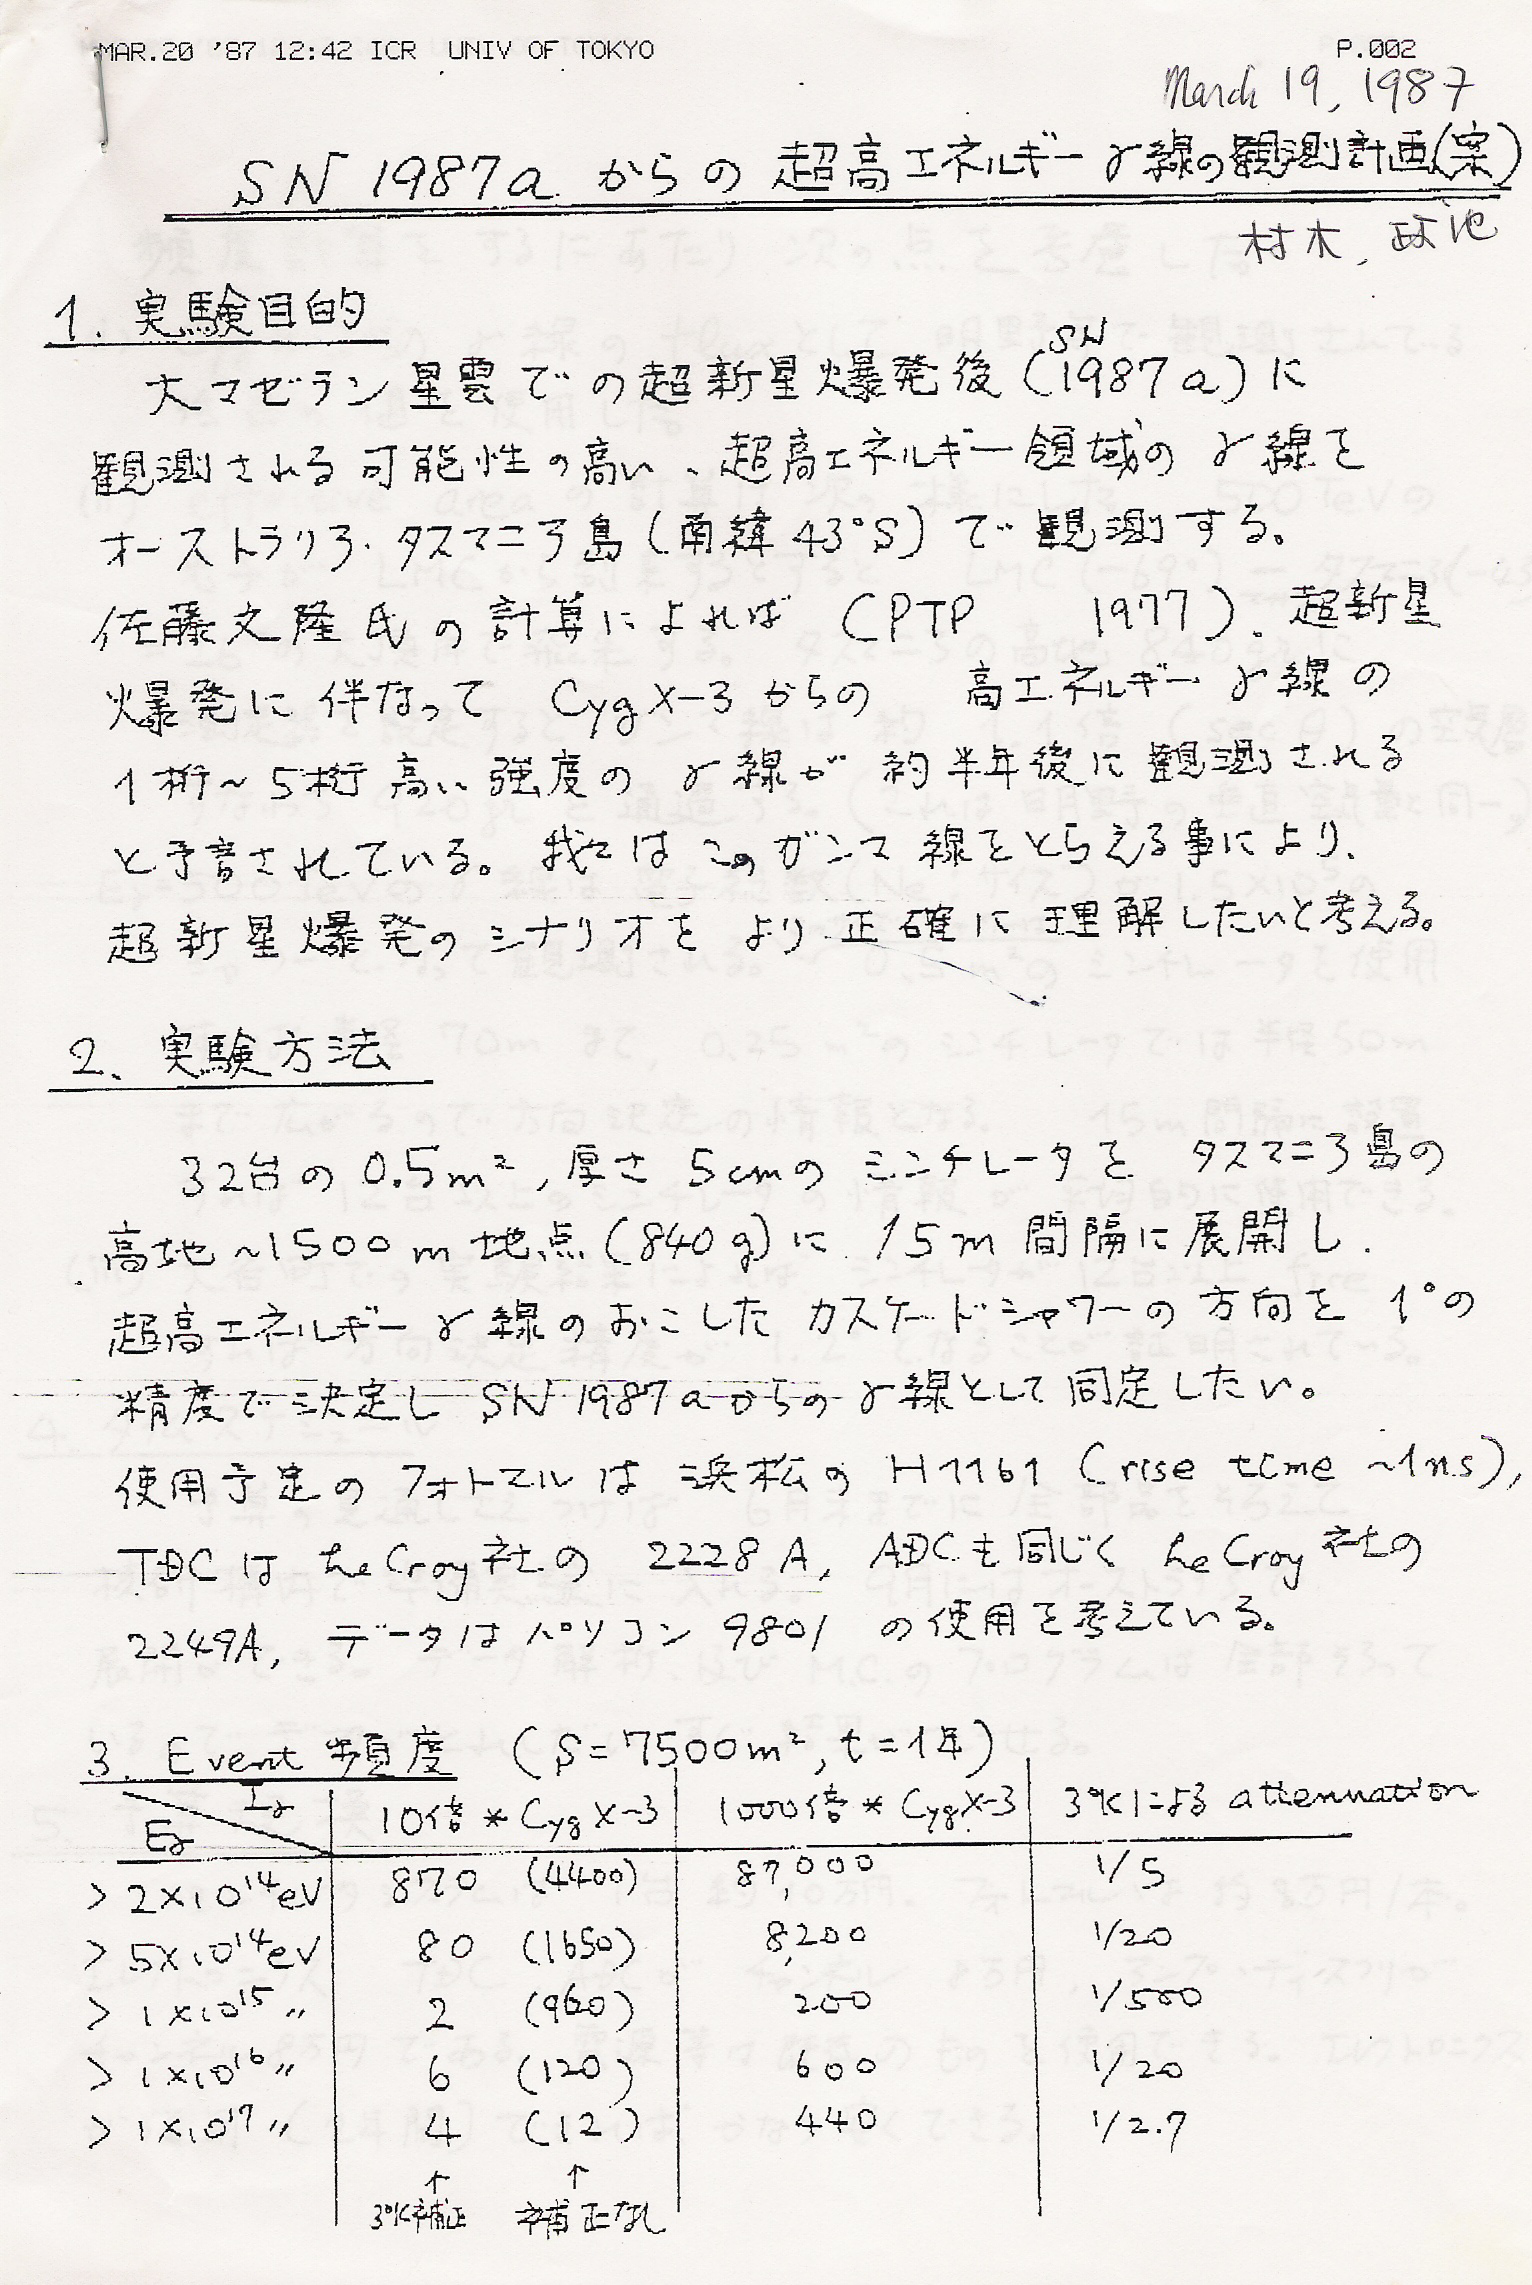 MAR.20 '87 12:42 ICR UNIV OF TOKYO P.002
March 19, 1987
SN 1987a からの 超高エネルギー γ線の観測計画(案)
村木, 政池
1. 実験目的
大マゼラン星雲での超新星爆発後(SN 1987a)に
観測される可能性の高い、超高エネルギー領域の γ線を
オーストラリア・タスマニア島(南緯43°S)で観測する。
佐藤文隆氏の計算によれば (PTP 1977)、超新星
爆発に伴なって CygX-3からの 高エネルギー γ線の
1桁~5桁高い強度の γ線が約半年後に観測される
と予言されている。我々はこのガンマ線をとらえる事により、
超新星爆発のシナリオを より正確に理解したいと考える。
2、実験方法
32台の0.5m², 厚さ 5cmの シンチレータを タスマニア島の
高地~1500m地点(840g)に 15m間隔に展開し、
超高エネルギー γ線のおこしたカスケードシャワーの方向を 1°の
精度で決定し SN 1987aからのγ線として同定したい。
使用予定のフォトマルは浜松の H1161 (rise time ~1ns),
TDCは LeCroy社の 2228A, ADCも同じく LeCroy社の
2249A, データはパソコン 9801 の使用を考えている。
3. Event 頻度 (S=7500m², t=1年)
Iγ
Eγ 10倍*CygX-3 1000倍*CygX-3 3°Kによる attennuation
>2×10¹⁴eV 870 (4400) 87,000 1/5
>5×10¹⁴eV 80 (1650) 8,200 1/20
>1×10¹⁵〃 2 (960) 200 1/500
>1×10¹⁶〃 6 (120) 600 1/20
>1×10¹⁷〃 4 (12) 440 1/2.7
↑ ↑
3°K補正 補正なし